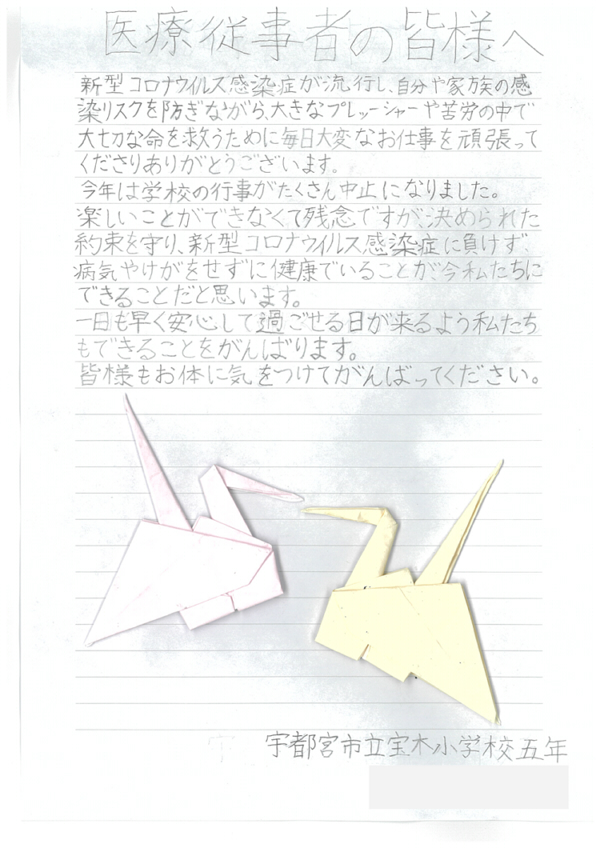 医療従事者の皆様へ
新型コロナウイルス感染症が流行し、自分や家族の感
染リスクを防ぎながら、大きなプレッシャーや苦労の中で
大切な命を救うために毎日大変なお仕事を頑張って
くださりありがとうございます。
今年は学校の行事がたくさん中止になりました。
楽しいことができなくて残念ですが決められた
約束を守り、新型コロナウイルス感染症に負けず、
病気やけがをせずに健康でいることが、今私たちに
できることだと思います。
一日も早く安心して過ごせる日が来るよう私たち
もできることをがんばります。
皆様もお体に気をつけてがんばってください。
宇都宮市立宝木小学校五年